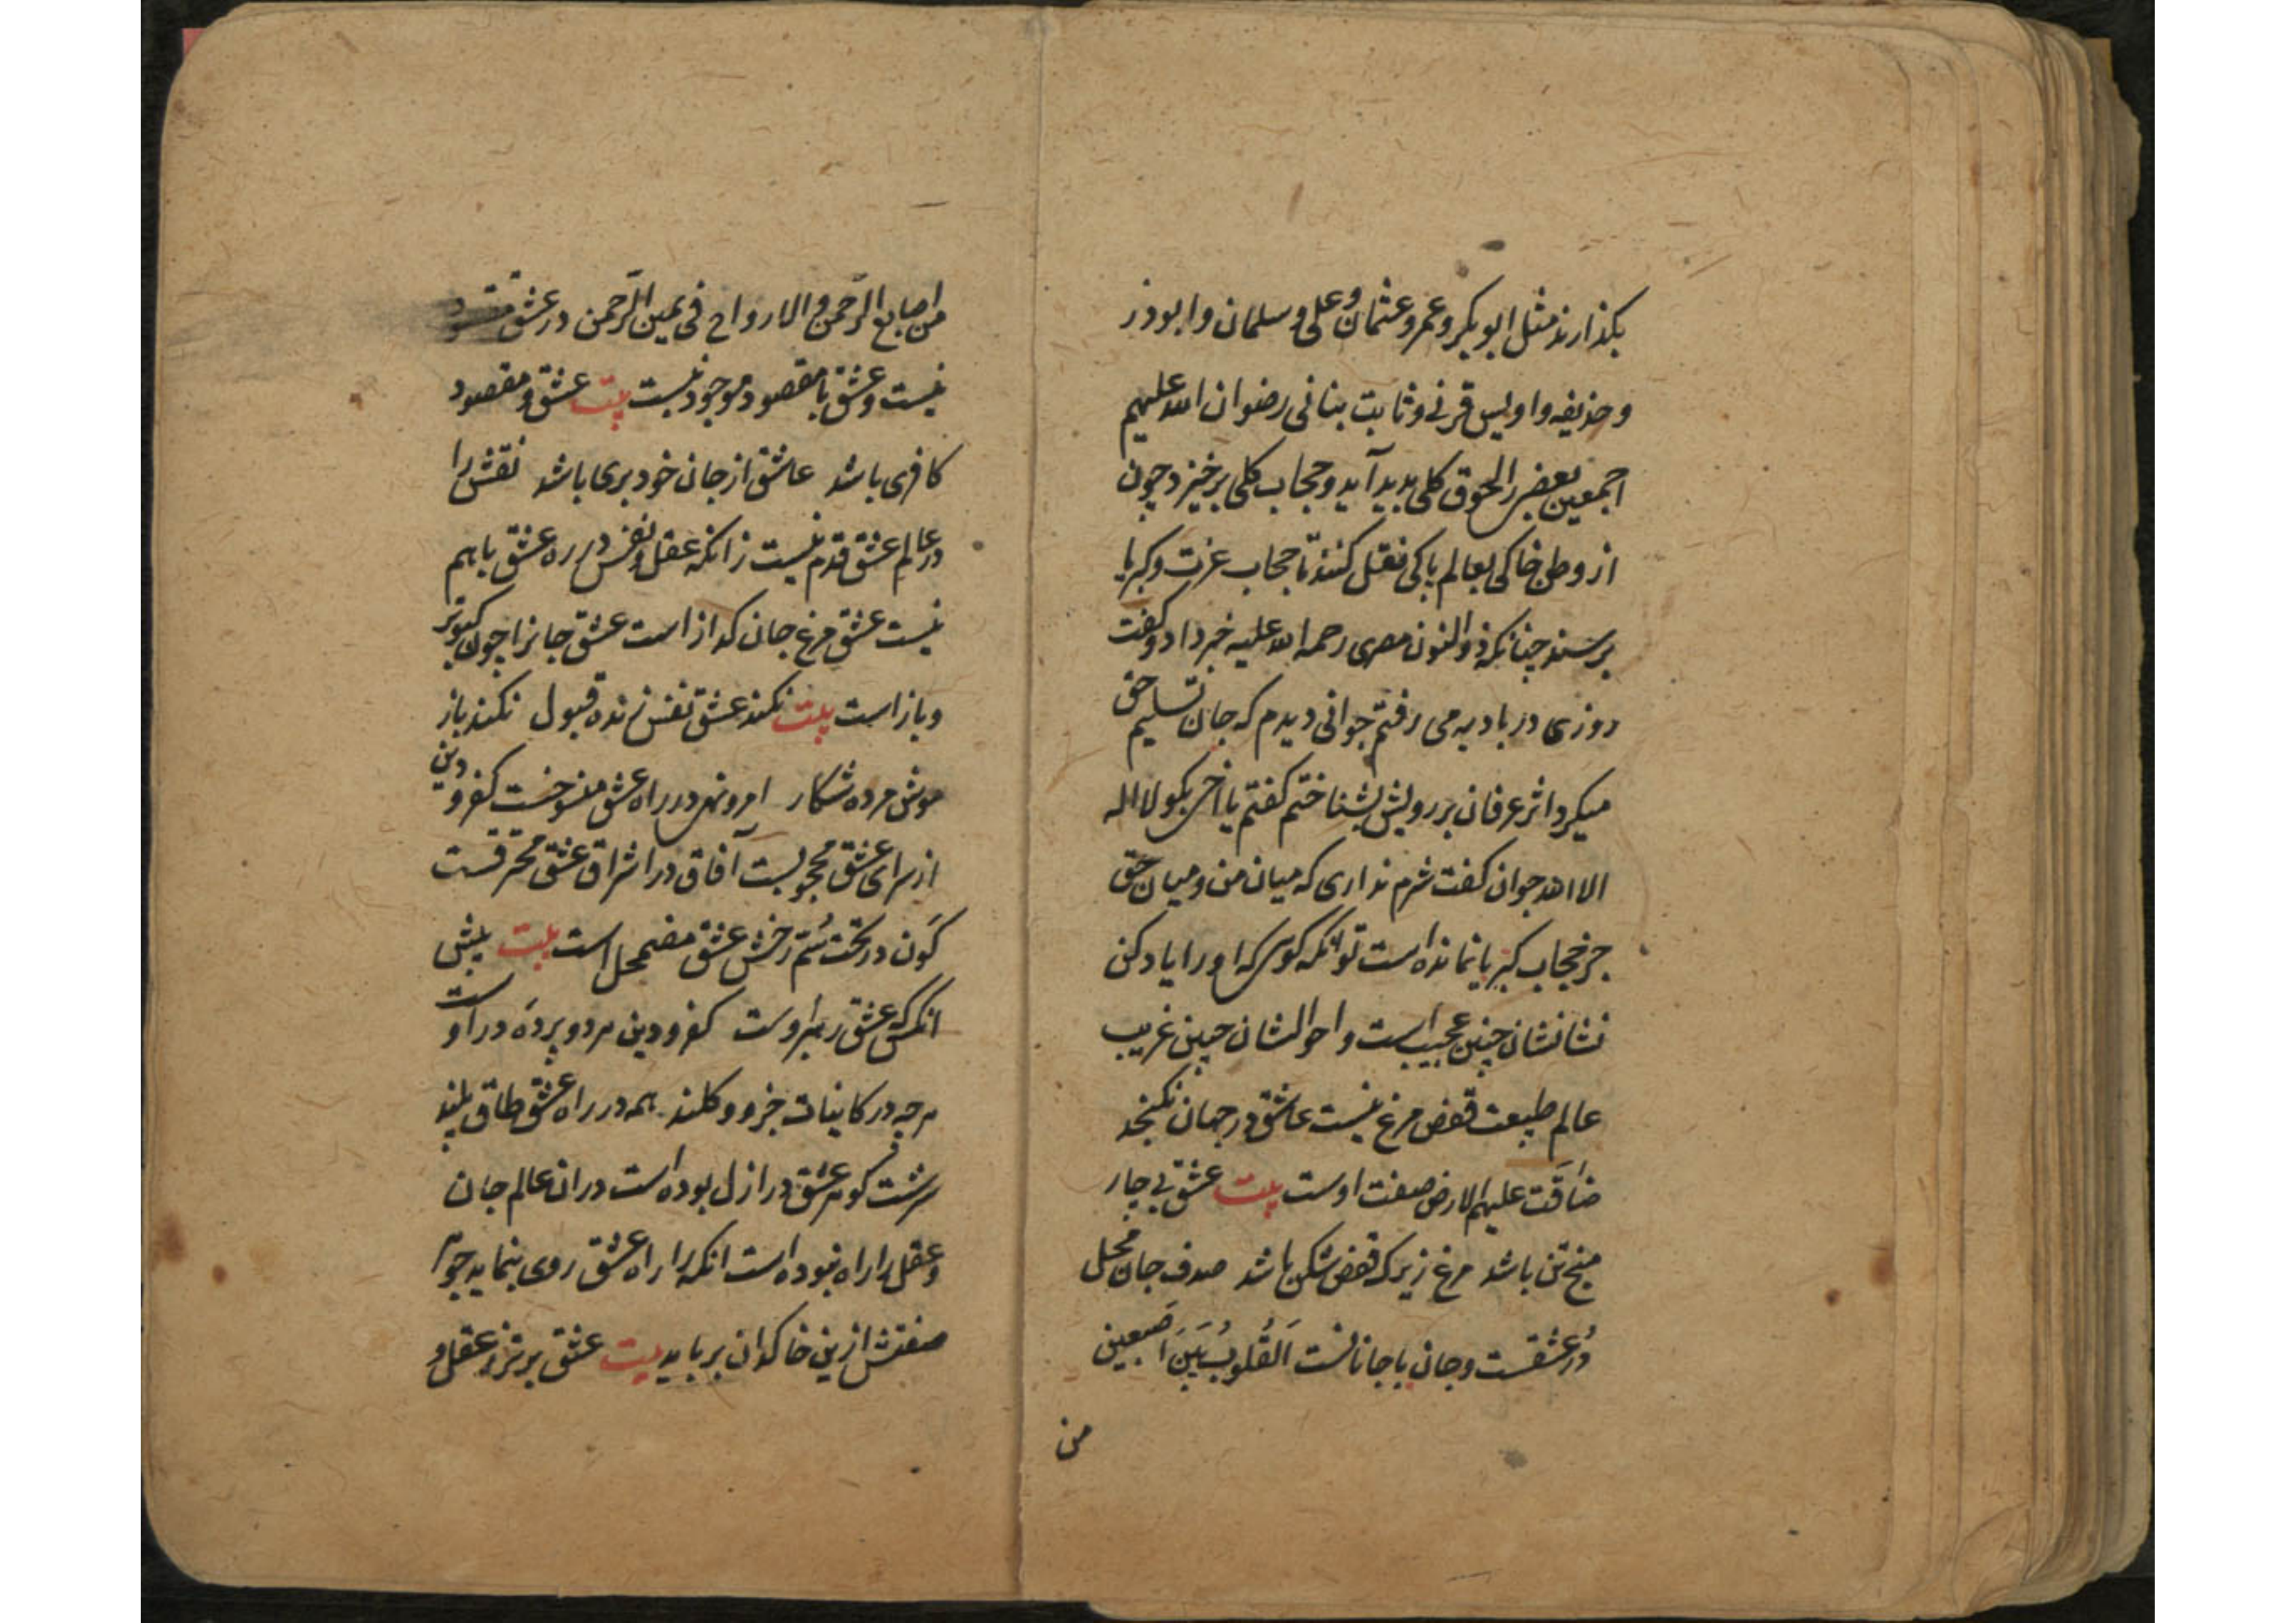 بکذارند مثل ابو بکر و عمر و عثمان و علی و سلمان و ابو ذر
و حذیفه و اویس قرنی و ثابت بنانی رضوان الله علیهم
اجمعین بعضی را لحوق کلی بدید آید و حجاب کلی برخیزد چون
از وطن خاکی بعالم پاکی نقل کنند تا حجاب عزت و کبریا
برسند چنانکه ذوالنون مصری رحمه الله علیه خبر داد و کفت
روزی در بادیه می رفتم جوانی دیدم که جان تسلیم حق
میکرد اثر عرفان بر رویش بشناختم کفتم یا اخی بکو لا اله
الا الله جوان کفت شرم نداری که میان من و میان حق
جز حجاب کبریا نمانده است تو انکه کوئی که او را یاد کن
نشانشان چنین عجیب است و احوالشان چنین غریب
عالم طبیعت قفص مرغ نیست عاشق در جهان نکنجد
ضاقت علیهم الارض صفت اوست بیت عشق بی چار
میخ تن باشد مرغ زیرک قفص شکن باشد صدف جان محل
در عشقست و جان با جانانست اَلقُلوبُ بَینَ اَصبعین
من
من اصابع الرحمن و الارواح فی یمین الرحمن در عشق مقصود
نیست و عشق با مقصود موجود نیست بیت عشق و مقصود
کافری باشد عاشق از جان خود بری باشد نقش را
در عالم عشق قدم نیست زانکه عقل و نفس در ره عشق با هم
نیست عشق مرغ جان کداز است عشق جانرا چون کبوتر
و باز است بیت نکند عشق نفس زنده قبول نکند باز
موش مرده شکار امر و نهی در راه عشق منسوخست کفر و دین
از سرای عشق محجوبست آفاق در اشراق عشق محترقست
کَون در تحت سُم رخش عشق مضمحل است بیت پیش
انکس که عشق رهبر اوست کفر و دین هر دو پرده در اوست
هر چه در کاینات جزو و کلند همه در راه عشق طاق پلند
سرشت کوهر عشق در ازل بوده است دران عالم جان
و عقل را راه نبوده است انکه را راه عشق روی بنماید جوهر
صفتش ازین خاکدان برباید بیت عشق برتر ز عقل و